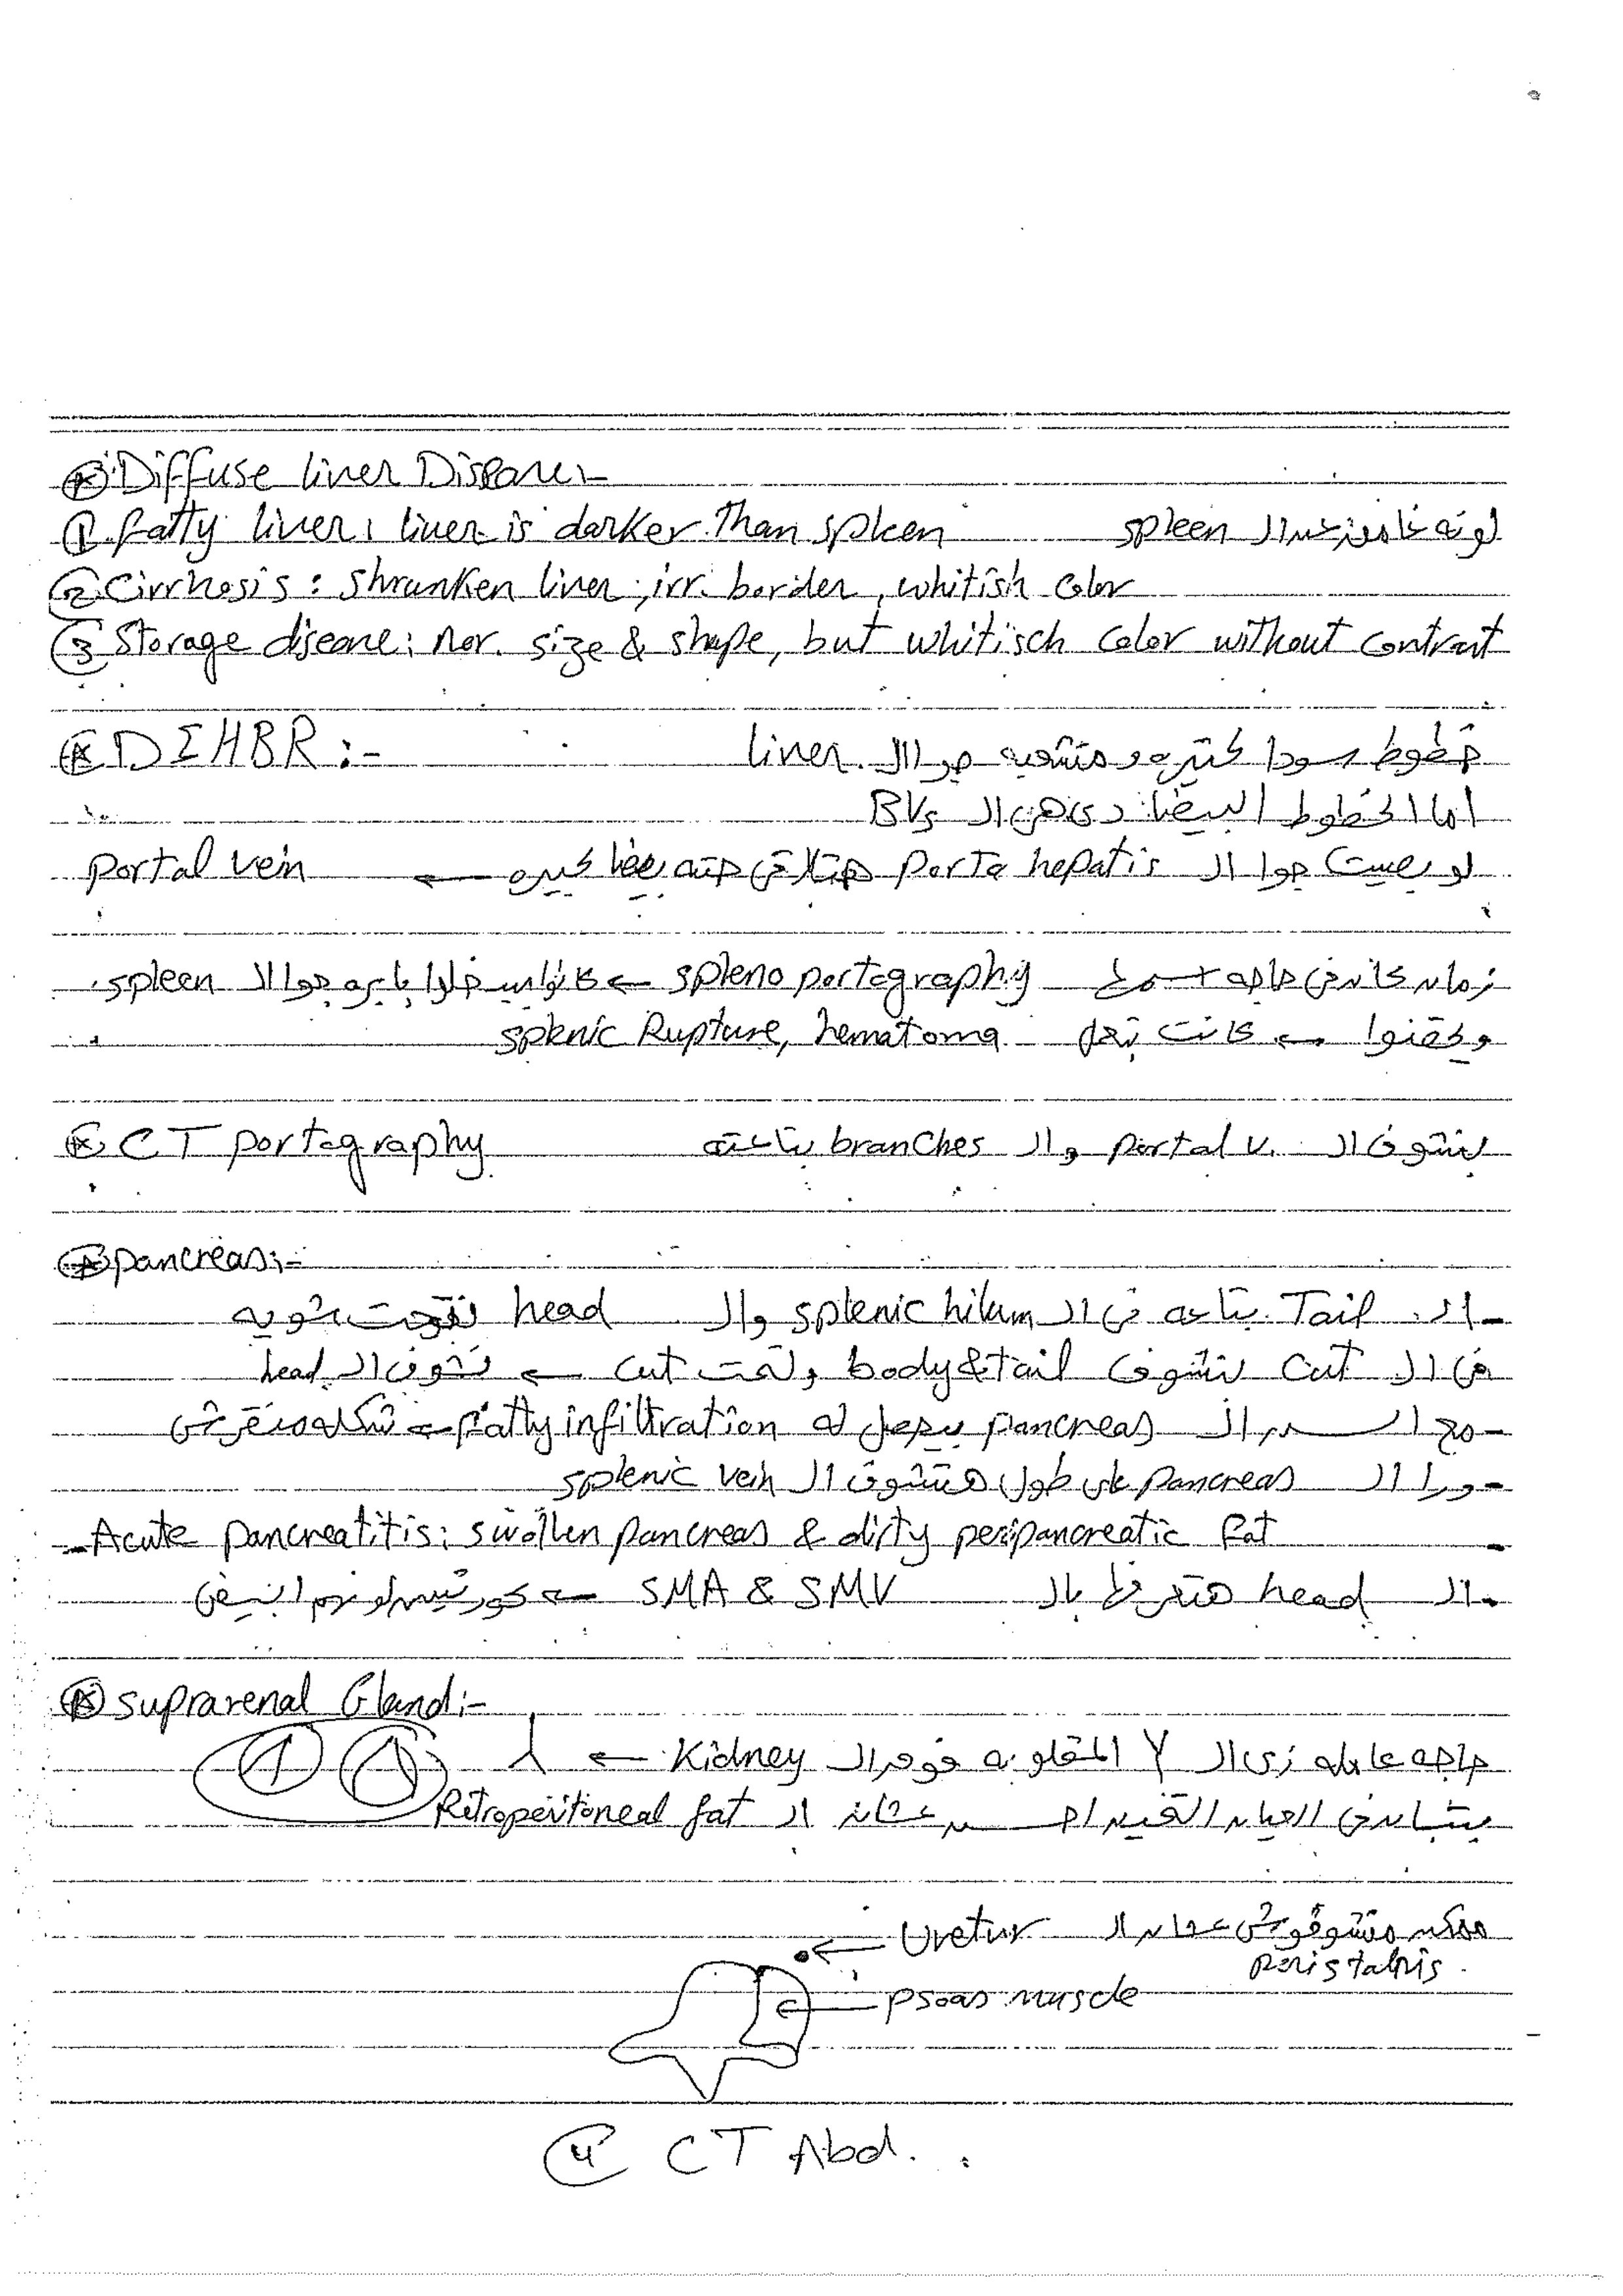 * Diffuse liver Disease:-
① fatty liver: liver is darker than spleen لونه غامق عن الـ spleen
② Cirrhosis: shrunken liver, irr. border, whitish color
③ Storage disease: nor. size & shape, but whitisch color without contrast
* DIHBR:- خطوط سودا كتيره و متشعبه جوا الـ liver.
اما الخطوط البيضا دى هى الـ BVs
لو بصيت جوا الـ porta hepatis هتلاقى حته بيضا كبيره ← portal vein
زمان كان فى حاجه اسمها spleno portography ← كانوا بيدخلوا بابره جوا الـ spleen.
ويحقنوا ← كانت بتعمل splenic Rupture, hematoma
* CT portography بنشوف الـ portal v. والـ branches بتاعته
* pancreas:-
- الـ Tail بتاعه فى الـ splenic hilum والـ head تحت شويه
فى الـ cut نشوف body & tail وتحت cut ← نشوف الـ head
- مع السن الـ pancreas بيحصل له fatty infiltration ← شكله
- ورا الـ pancreas على طول هتشوف الـ splenic vein
- Acute pancreatitis: swollen pancreas & dirty peripancreatic fat
- الـ head هتعرفها بالـ SMA & SMV ← كورتين لونهم ابيض
* suprarenal Gland:-
حاجه عامله زى الـ Y المقلوبه فوق الـ Kidney ← ⅄
يتبان فى العيان التخين احسن عشان الـ Retroperitoneal fat
ممكن متشوفوش عشان الـ Uretur ←
peristalsis.
psoas muscle
④ CT Abd.